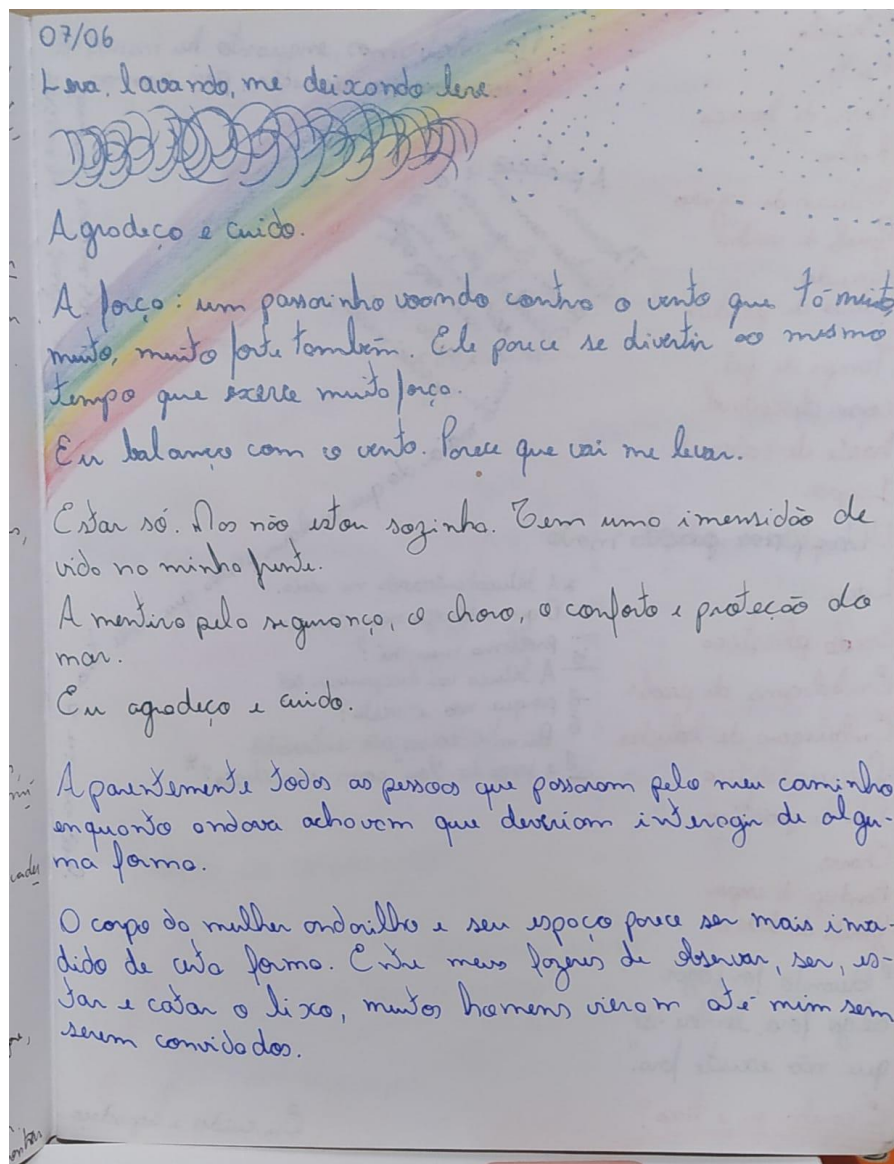 07/06
Leva, lavando, me deixando leve.
Agradeço e cuido.
A força: um passarinho voando contra o vento que tá muito
muito, muito forte também. Ele parece se divertir ao mesmo
tempo que exerce muita força.
Eu balanço com o vento. Parece que vai me levar.
Estar só. Mas não estou sozinha. Tem uma imensidão de
vida na minha frente.
A mentira pela segurança, o choro, o conforto e proteção do
mar.
Eu agradeço e cuido.
Aparentemente todas as pessoas que passaram pelo meu caminho
enquanto andava achavam que deveriam interagir de algu-
ma forma.
O corpo da mulher andarilha e seu espaço parece ser mais inva-
dido de certa forma. Entre meus fazeres de observar, ser, es-
tar e catar o lixo, muitos homens vieram até mim sem
serem convidados.